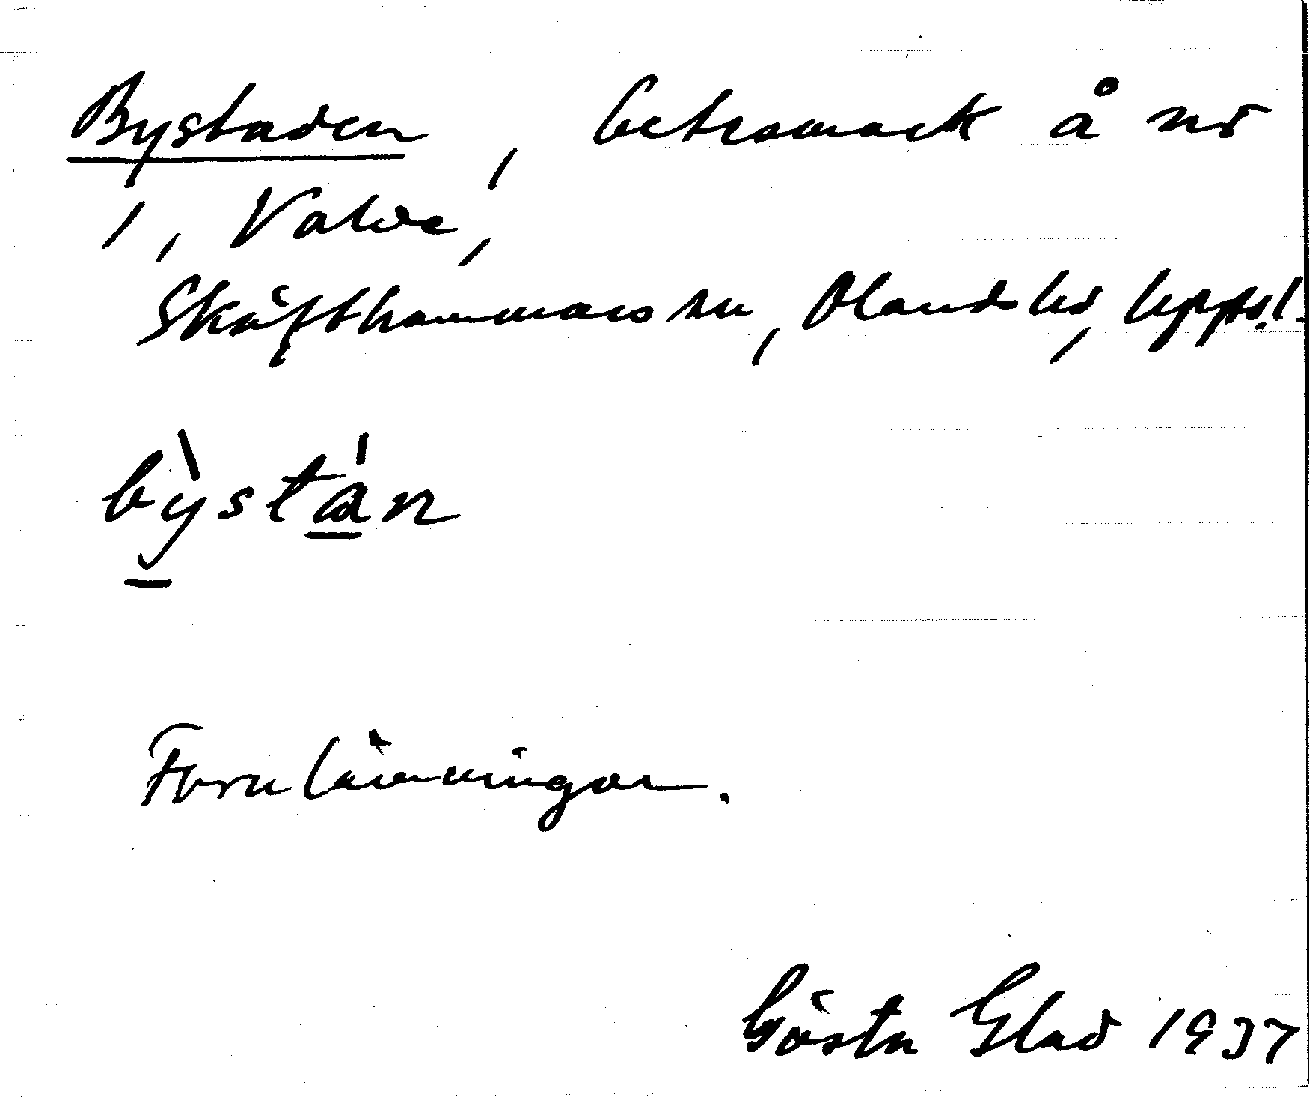 Bystaden, betesmark å nr
1, Valve,
Skäfthammars sn, Olands hd, Upps.l.
bỳstán
Fornlämningar.
Gösta Glad 1937